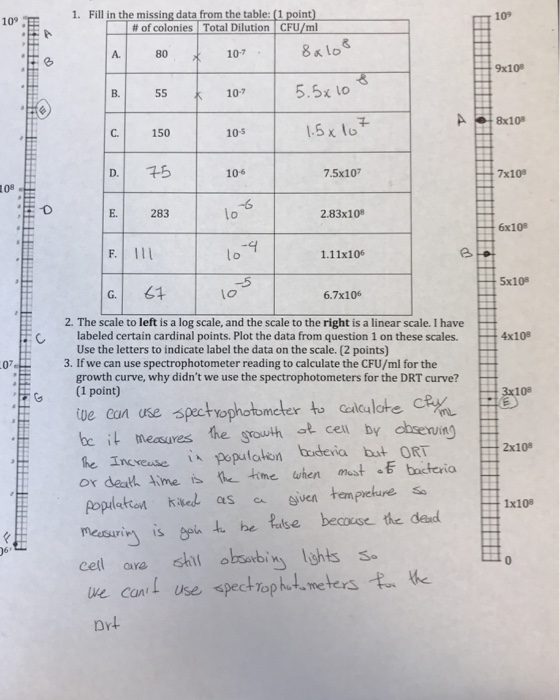 1. Fill in the missing data from the table: (1 point)
# of colonies Total Dilution CFU/ml
A. 80 x 10-7 8x10^8
B. 55 x 10-7 5.5x10^8
C. 150 10-5 1.5x10^7
D. 75 10-6 7.5x10^7
E. 283 10^-6 2.83x10^8
F. 111 10^-4 1.11x10^6
G. 67 10^-5 6.7x10^6
2. The scale to left is a log scale, and the scale to the right is a linear scale. I have
labeled certain cardinal points. Plot the data from question 1 on these scales.
Use the letters to indicate label the data on the scale. (2 points)
3. If we can use spectrophotometer reading to calculate the CFU/ml for the
growth curve, why didn't we use the spectrophotometers for the DRT curve?
(1 point)
we can use spectrophotometer to calculate cfu/mL
bc it measures the growth of cell by observing
the Increase in population bacteria but DRT
or death time is the time when most of bacteria
population killed as a given tempreture so
measuring is goin to be false because the dead
cell are still obsorbing lights so
we can't use spectrophotometers for the
Drt
10^9
A
B
E
10^8
D
C
10^7
G
F
10^6
10^9
9x10^8
A 8x10^8
7x10^8
6x10^8
B
5x10^8
4x10^8
3x10^8
E
2x10^8
1x10^8
0